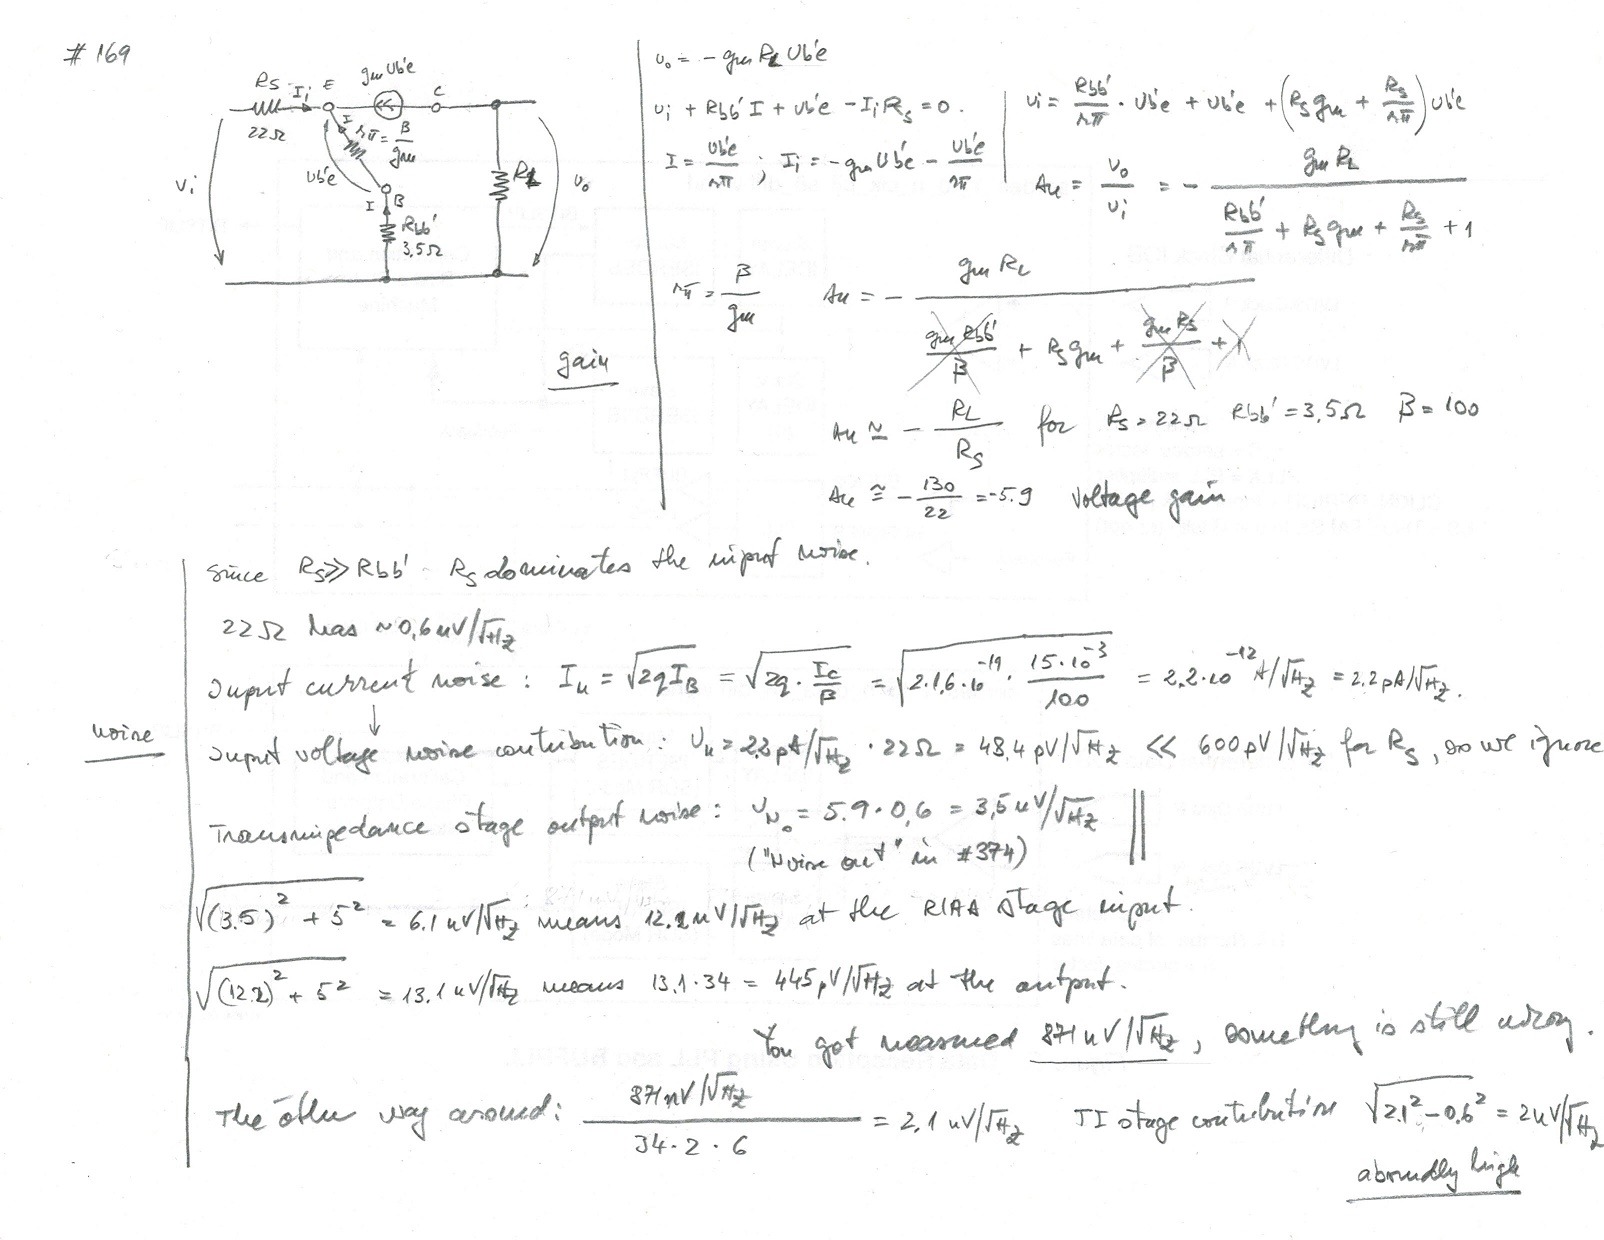 # 169
Rs Ii E gm Ub'e C
22Ω I rπ = β/gm
Vi Ub'e B RL Uo
I Rbb'
3,5Ω
gain
Uo = - gm RL Ub'e
Ui + Rbb' I + Ub'e - Ii Rs = 0.
I = Ub'e/rπ ; Ii = - gm Ub'e - Ub'e/rπ
Ui = Rbb'/rπ · Ub'e + Ub'e + (Rs gm + Rs/rπ) Ub'e
Au = Uo/Ui = - gm RL / (Rbb'/rπ + Rs gm + Rs/rπ + 1)
rπ = β/gm
Au = - gm RL / (gm Rbb'/β + Rs gm + gm Rs/β + 1)
Au ≅ - RL/Rs for Rs = 22Ω Rbb' = 3,5Ω β = 100
Au ≅ - 130/22 = -5.9 voltage gain
noise
Since Rs >> Rbb' - Rs dominates the input noise.
22Ω has ~0,6 nV/√Hz
Input current noise : In = √(2qIB) = √(2q · Ic/β) = √(2·1,6·10^-19 · 15·10^-3/100) = 2,2·10^-12 A/√Hz = 2,2 pA/√Hz.
Input voltage noise contribution : Un = 2,2 pA/√Hz · 22Ω = 48,4 pV/√Hz << 600 pV/√Hz for Rs, so we ignore
Transimpedance stage output noise : UNo = 5.9 · 0,6 = 3,5 nV/√Hz
("Noise out" in #374)
√((3.5)² + 5²) = 6.1 nV/√Hz means 12.2 nV/√Hz at the RIAA stage input.
√((12.2)² + 5²) = 13.1 nV/√Hz means 13.1·34 = 445 pV/√Hz at the output.
You got measured 871 nV/√Hz, something is still wrong.
The other way around: 871 nV/√Hz / (34 · 2 · 6) = 2,1 nV/√Hz TI stage contribution √(2.1² - 0,6²) = 2 nV/√Hz
absurdly high